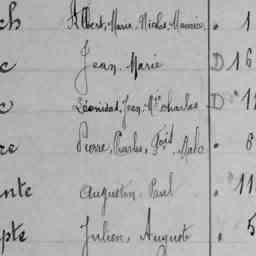 ch Albert, Marie, Nicolas, Maurice . 1
c Jean Marie D 16
c Léonidas, Jean, Mie Charles D 1
re Pierre, Charles, Malo . 8
nte Augustin, Paul . 11
pte Julien, August . 5